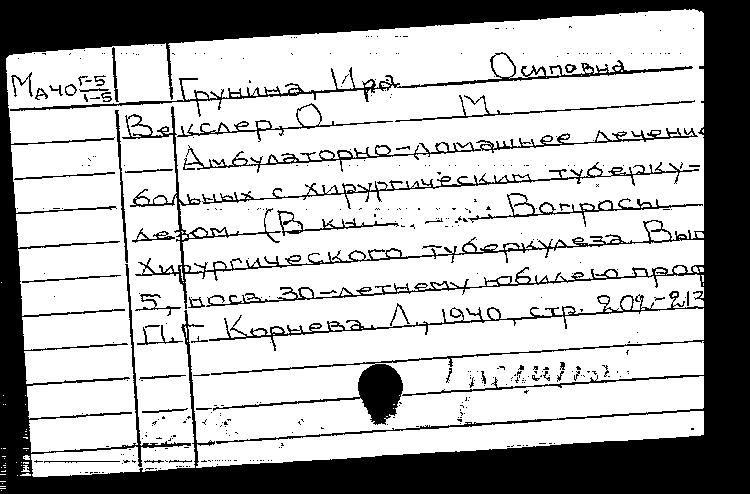 МАЧО Г-5/1-5 Грунина, Ира Осиповна
Векслер, О. М.
Амбулаторно-домашнее лечение
больных с хирургическим туберку=
лезом. (В кн.: Вопросы
хирургического туберкулеза. Вып
5, посв. 30-летнему юбилею проф
П.Г. Корнева. Л., 1940, стр. 209-213